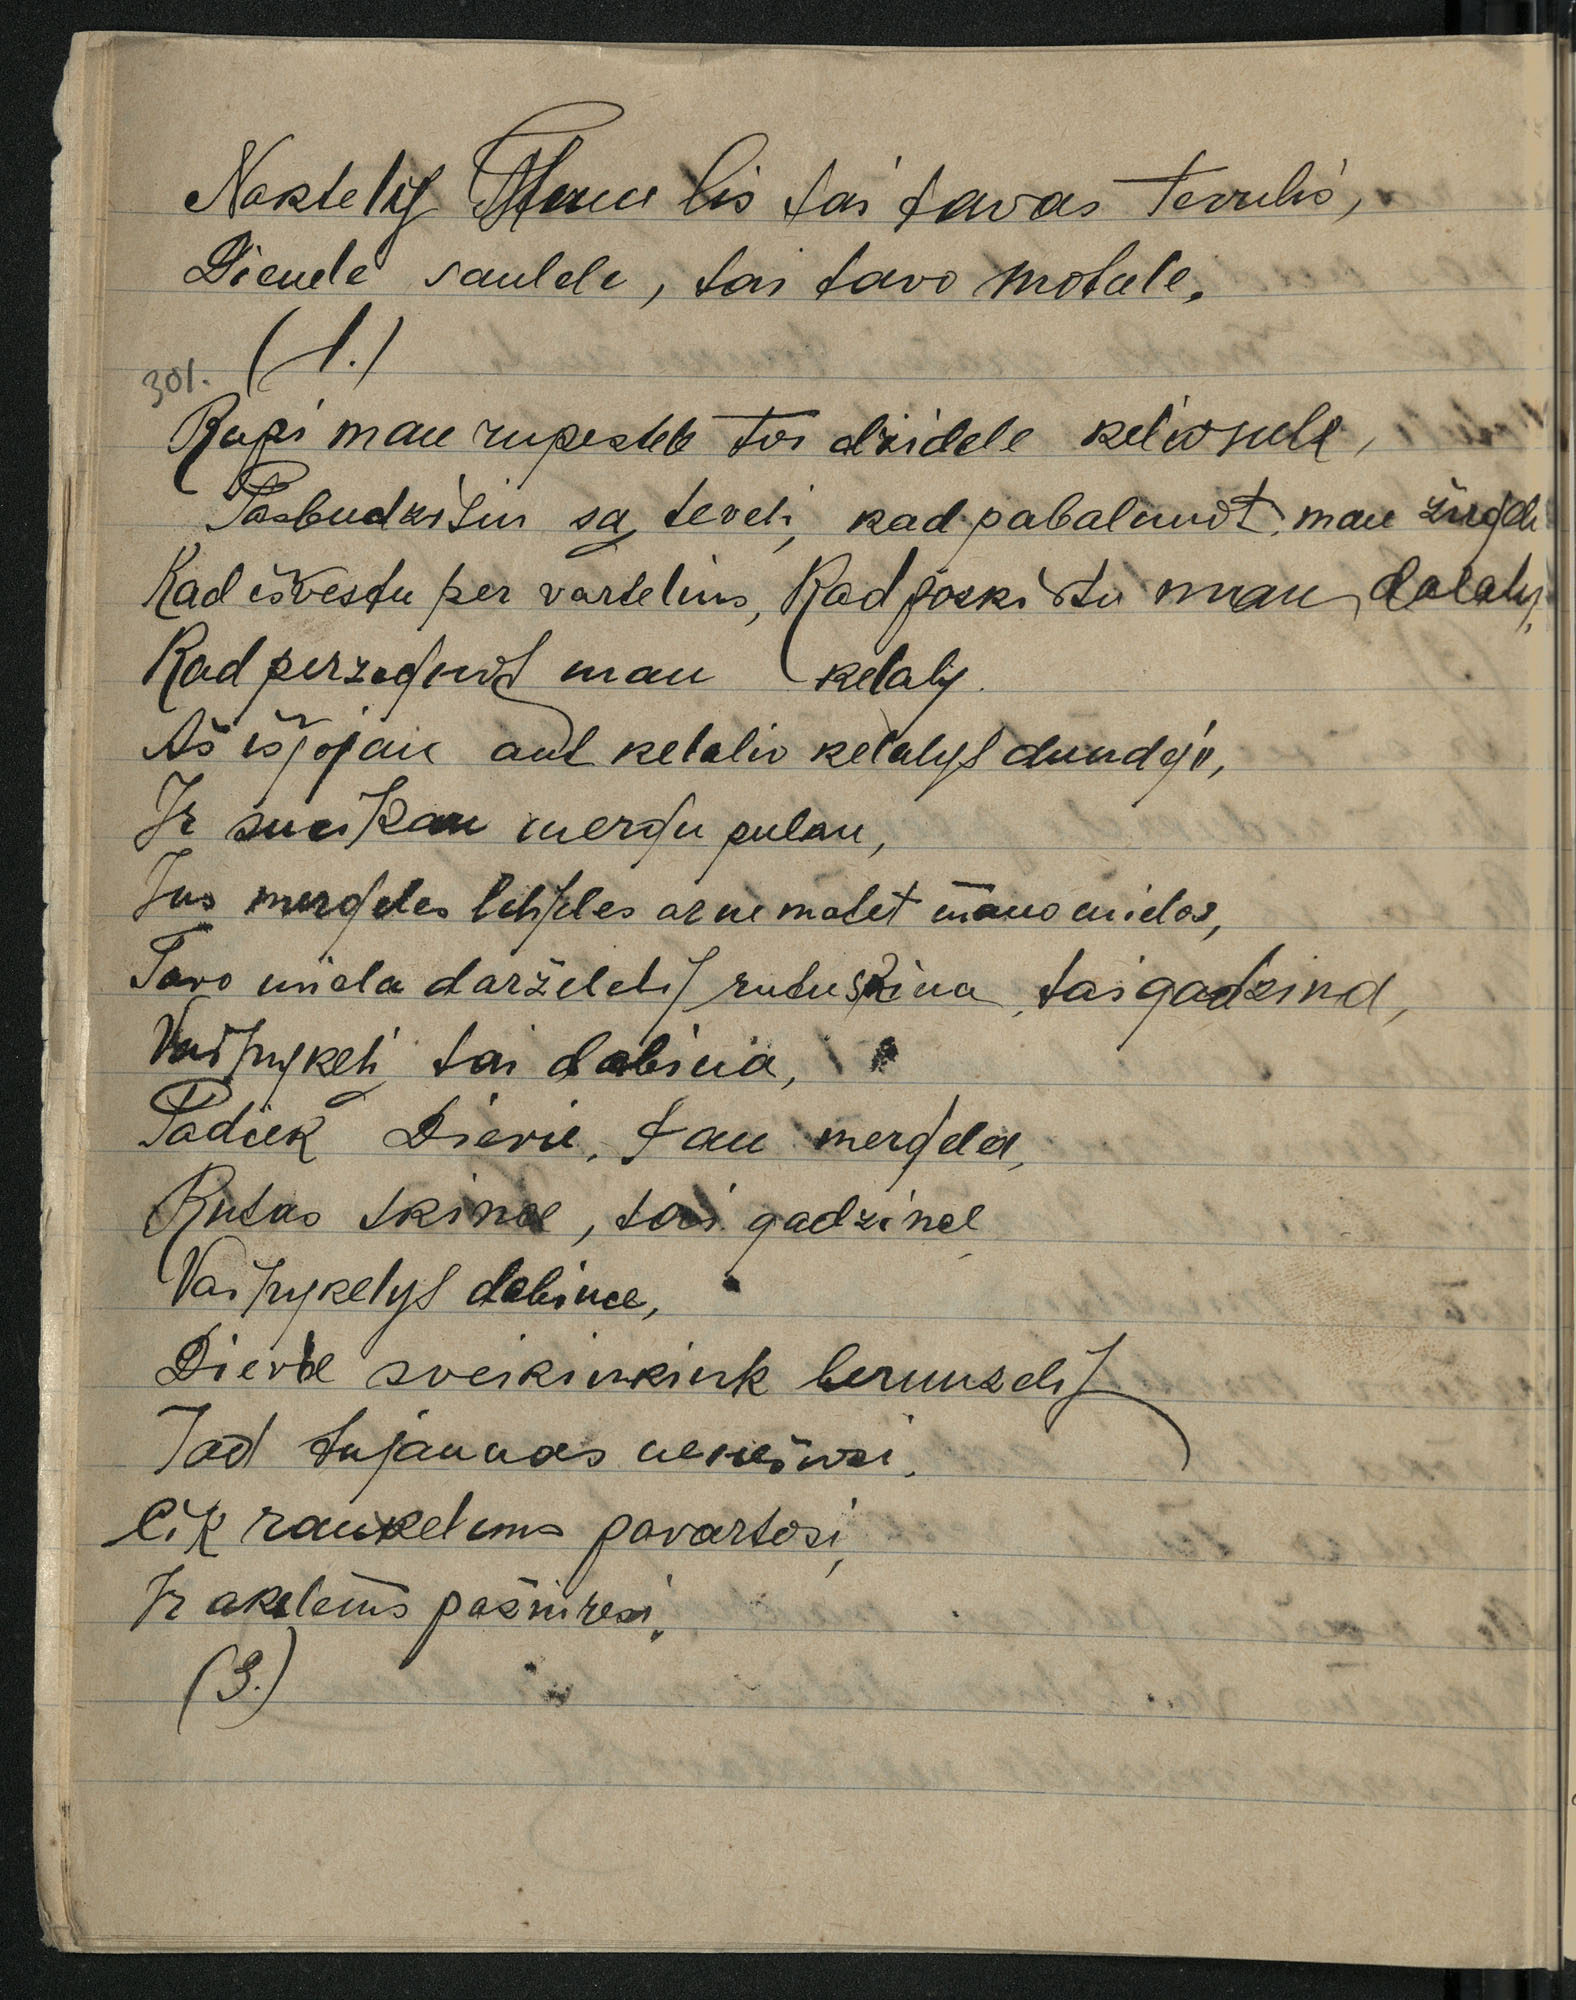 Naktelij Menulis tai tavas tevulis,
Dienele saulele, tai tavo motule.
(1.)
301.
Rupi man rupestele toi dzidele keliorule,
Pasbudzisiu są teveli, kad pabalnuot, man žirgeli
Kad išvestu per vartelius, Kad poski stu man dalaly,
Kad perzegnot man kelaly.
Aš išjojau ant kelalio kelalys dundėjo,
Ir sueikau mergu pulau,
Jus mergeles lelijeles ar ne matet mano mielos,
Tavo miela darželelij rutu skina, tai gadzina,
Vainykeli tai dabina,
Padiek Dievie, tau mergela,
Rutas skinee, tai gadzinee
Vainykelys dabinee,
Dievie sveikinkink bernuzelij
Tad tujaunas nenešiosi.
Cik rankelems pavartosi,
Ir akelems pažiuresi.
(3.)